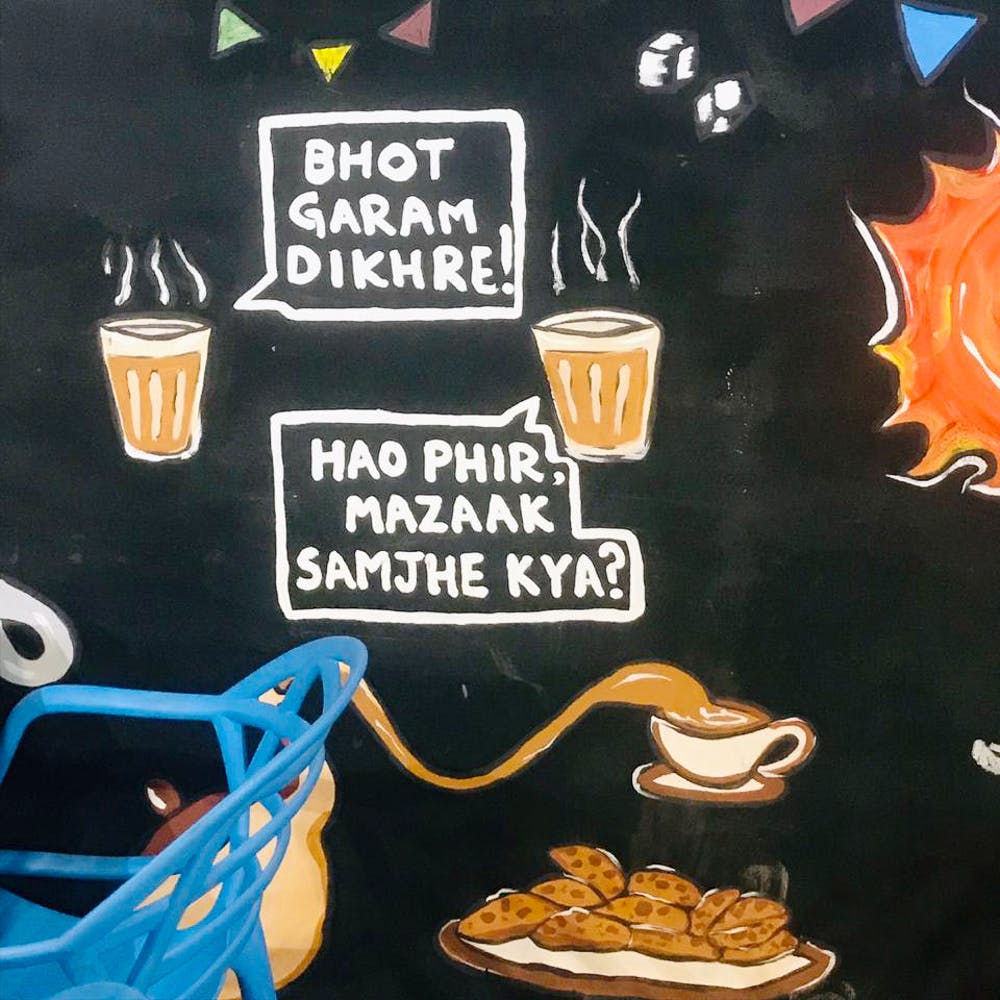 BHOT
GARAM
DIKHRE!
HAO PHIR,
MAZAAK
SAMJHE KYA?